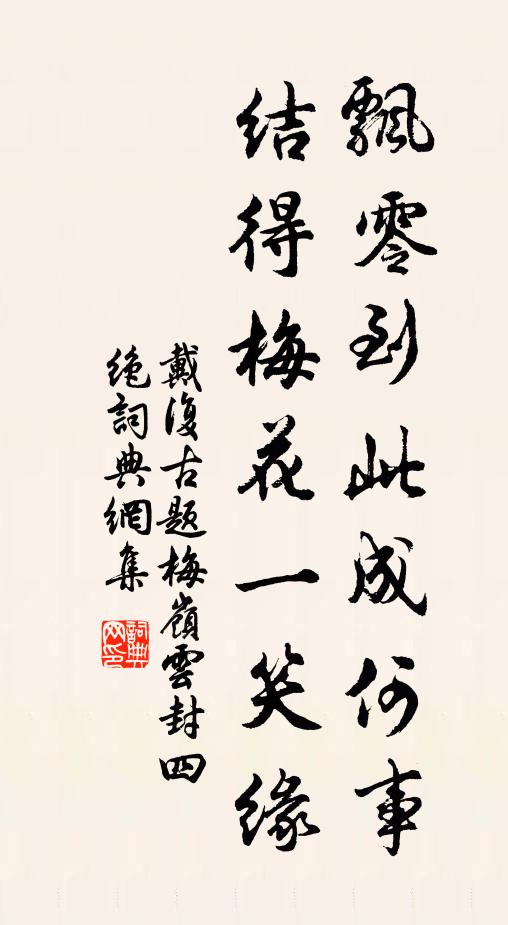 飄零到此成何事
結得梅花一笑緣
戴復古題梅嶺雲封四
絶詞典網集
詞典网印